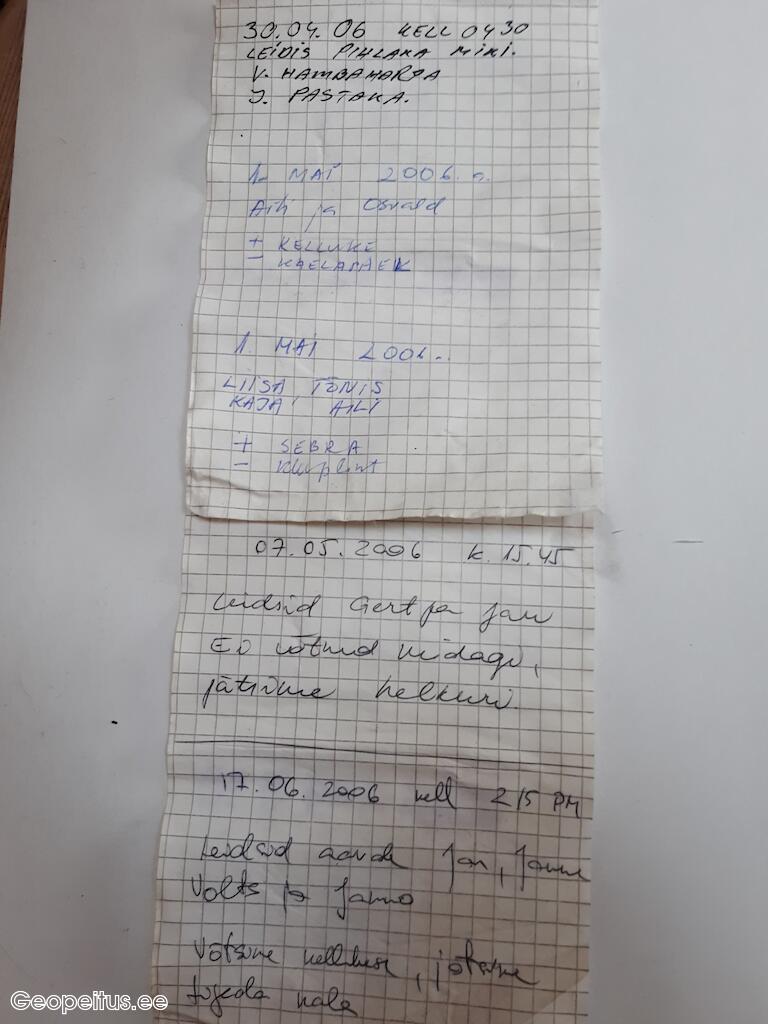 30.04.06 KELL 0430
LEIDIS PIHLAKA MIKI.
V. HAMBAHARJA
J. PASTAKA.
1. MAI 2006. a.
Aili ja Osvald
+ KELLUKE
- KAELAPAEL
1. MAI 2006..
LIISA TÕNIS
KAJA AILI
+ SEBRA
-
07.05.2006 k. 15.45
leidsid Gert ja Jan
Ei võtnud midagi,
jätsime helkuri.
17.06.2006 kell 215 PM
Leidsid aarde Jan, Janne
Volts ja Janno
Võtsime kellukese, jätsime
kala
Geopeitus.ee